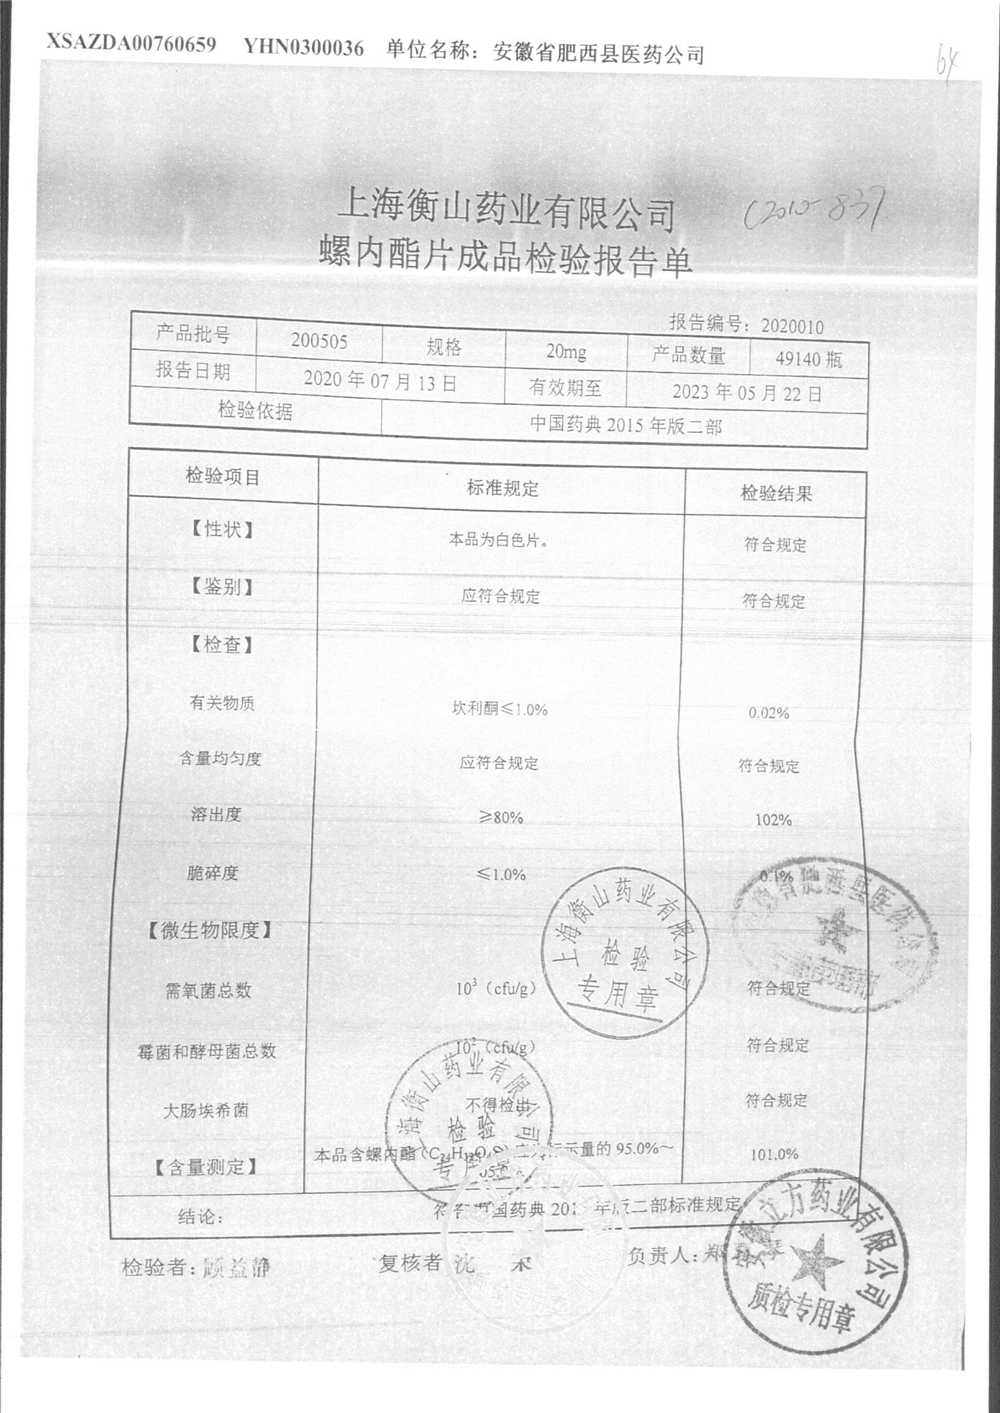 XSAZDA00760659 YHN0300036 单位名称：安徽省肥西县医药公司
64
上海衡山药业有限公司
(2010-837
螺内酯片成品检验报告单
报告编号：2020010
产品批号 200505 规格 20mg 产品数量 49140 瓶
报告日期 2020 年 07 月 13 日 有效期至 2023 年 05 月 22 日
检验依据 中国药典 2015 年版二部
检验项目 标准规定 检验结果
【性状】 本品为白色片。 符合规定
【鉴别】 应符合规定 符合规定
【检查】
有关物质 坎利酮≤1.0% 0.02%
含量均匀度 应符合规定 符合规定
溶出度 ≥80% 102%
脆碎度 ≤1.0% 0.1%
【微生物限度】
需氧菌总数 10³（cfu/g） 符合规定
霉菌和酵母菌总数 10²（cfu/g） 符合规定
大肠埃希菌 不得检出 符合规定
【含量测定】 本品含螺内酯 标示量的 95.0%～ 101.0%
结论： 国药典 201 年版二部标准规定
检验者：顾益静 复核者 沈 负责人：郑
上海衡山药业有限公司
检验
专用章
省肥西县医药公
上海衡山药业有限公司
检验
专用章
安徽立方药业有限公司
质检专用章